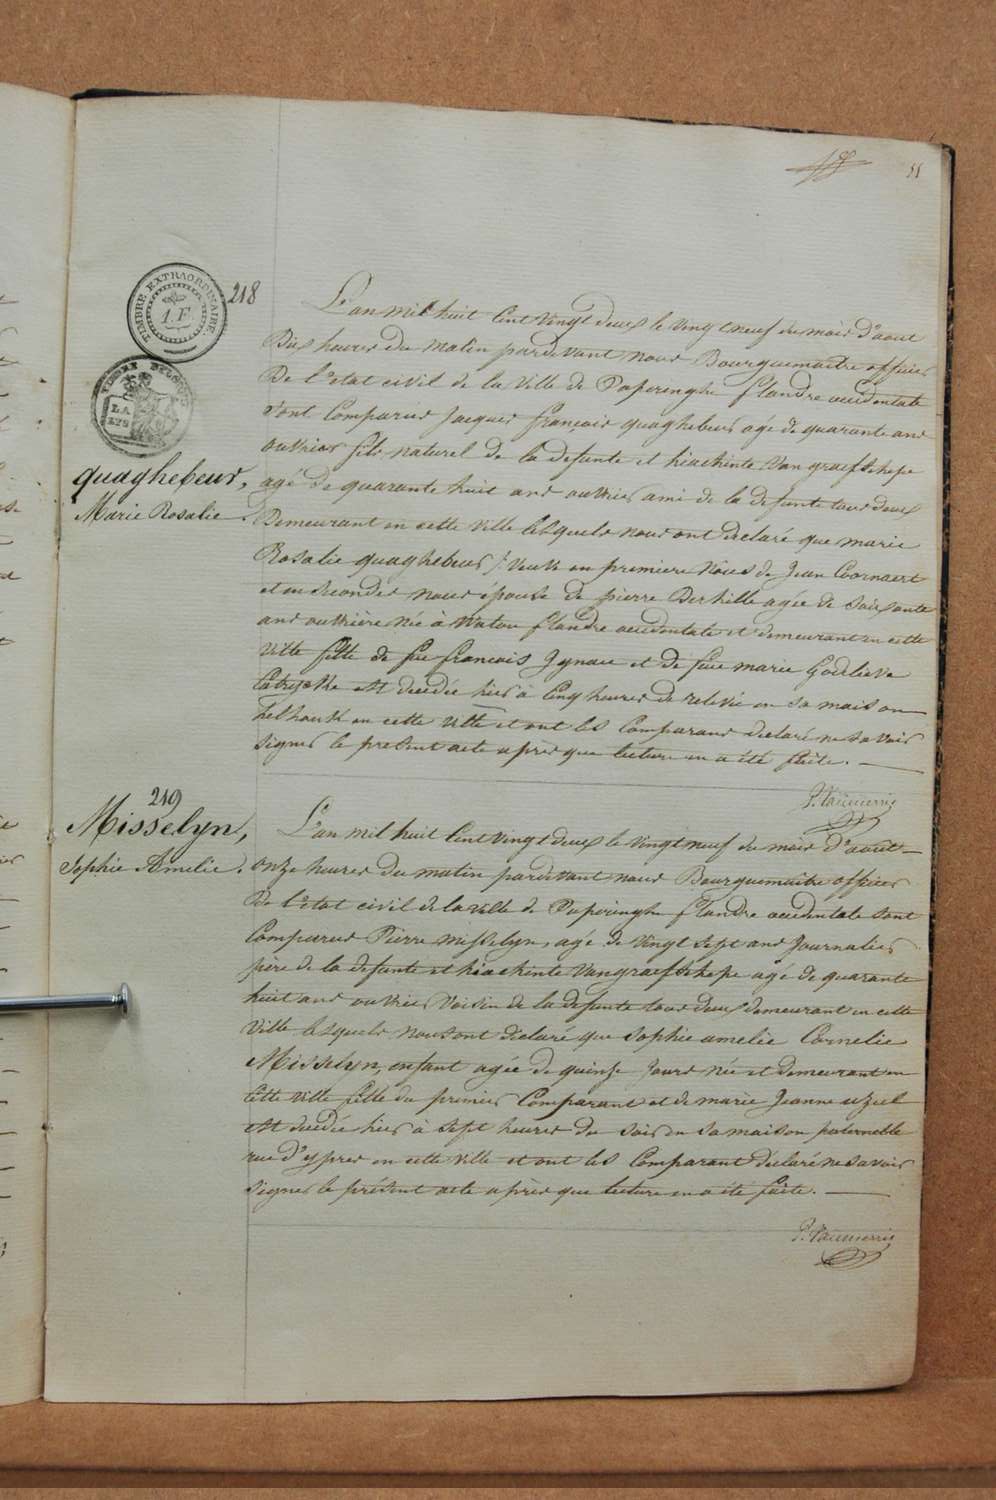 55
TIMBRE EXTRAORDINAIRE
1. F.
218
LA
LYS
quaghebeur,
Marie Rosalie.
L'an mil huit Cent vingt deux le vingt neuf du mois d'aout
Dix heures du matin pardevant nous Bourguemaitre officier
De l'etat civil de la ville de Poperinghe flandre occidentale
Sont Comparus Jacques francois quaghebeur agé de quarante ans
ouvrier fils naturel de la defunte et hiachinte Van graefschepe
agé de quarante huit ans ouvrier ami de la defunte tous deux
Demeurant en cette ville lesquels nous ont declaré que marie
Rosalie quaghebeur veuve en premiere nôces de Jean Coornaert
et en secondes nôces épouse de pierre Derhille agée de soixante
ans ouvrière née à Watou flandre occidentale et demeurant en cette
ville fille de feu francois Ignace et de feue marie Godelieve
est decedée hier à Cinq heures de relevée en sa maison
en cette ville et ont les Comparans declaré ne savoir
signer le present acte après que lecture en a été faite.
P. Vaumerris
219
Misselyn,
Sophie Amelie.
L'an mil huit Cent vingt deux le vingt neuf du mois d'aout
onze heures du matin pardevant nous Bourguemaitre officier
De l'etat civil de la ville de Poperinghe flandre occidentale sont
Comparus Pierre misselyn, agé de vingt sept ans Journalier
père de la defunte et hiachinte Vangraefschepe agé de quarante
huit ans ouvrier voisin de la defunte tous deux demeurant en cette
ville lesquels nous ont declaré que sophie amelie Cornelie
Misselyn, enfant agée de quinze Jours née et demeurant en
cette ville fille du premier Comparant et de marie Jeanne uziel
est decedée hier à sept heures du soir en sa maison paternelle
rue d'ypres en cette ville et ont les Comparant déclaré ne savoir
signer le présent acte après que lecture en a été faite.
P. Vaumerris